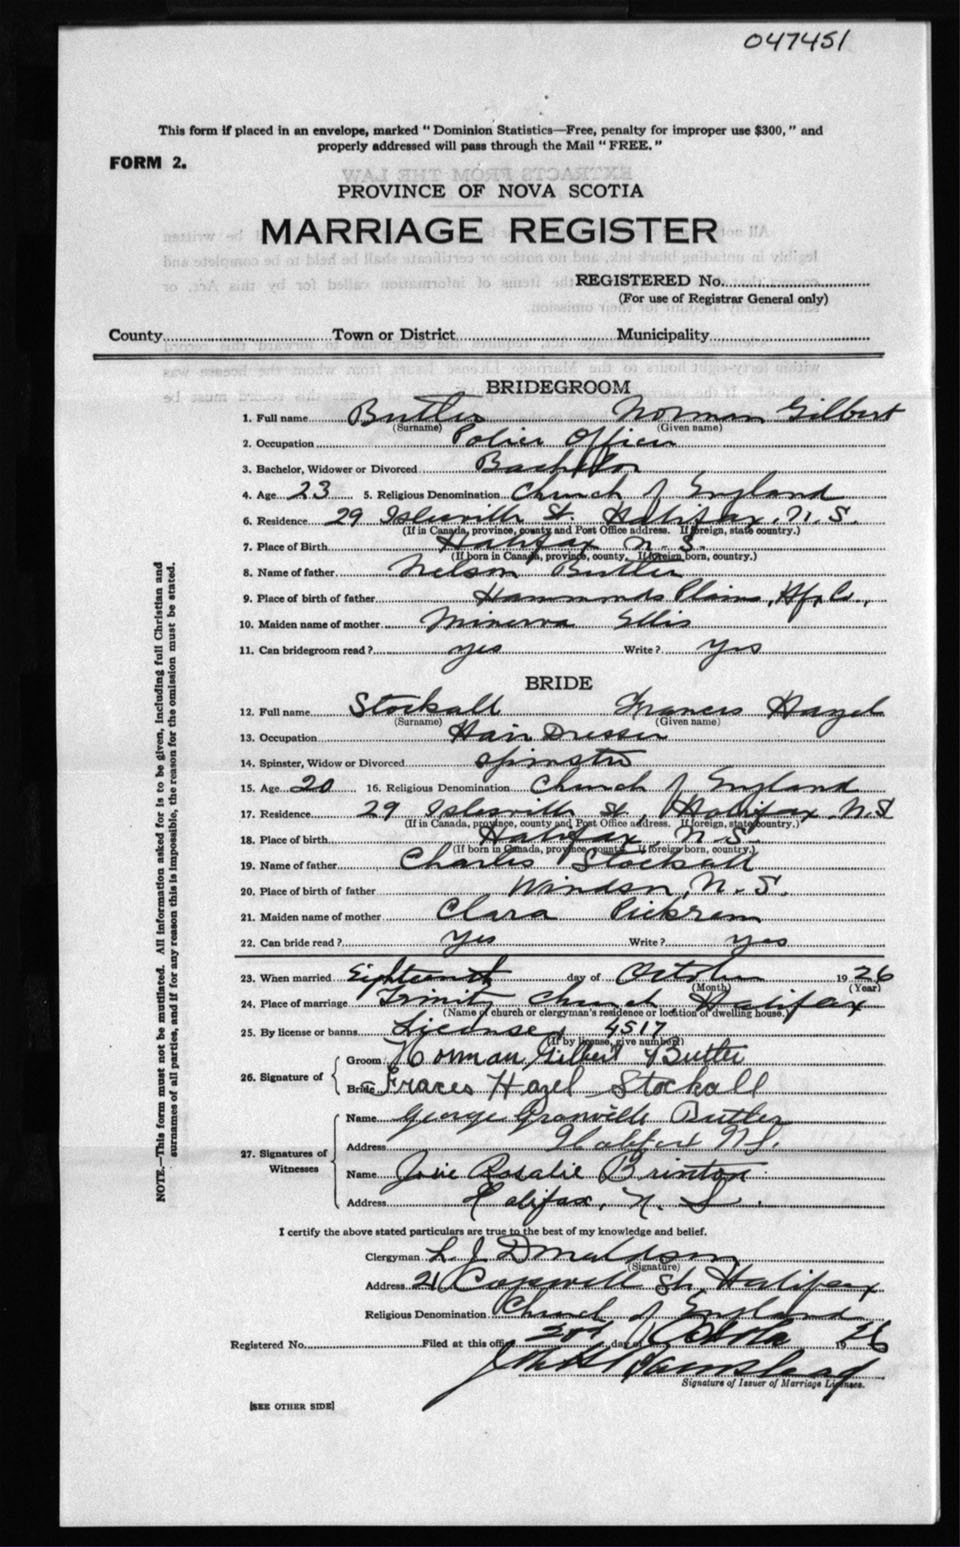 047451
This form if placed in an envelope, marked "Dominion Statistics—Free, penalty for improper use $300," and
properly addressed will pass through the Mail "FREE."
FORM 2.
EXTRACTS FROM THE LAW
PROVINCE OF NOVA SCOTIA
MARRIAGE REGISTER
REGISTERED No.
(For use of Registrar General only)
County Town or District Municipality
BRIDEGROOM
1. Full name Butler Norman Gilbert
(Surname) (Given name)
2. Occupation Police Officer
3. Bachelor, Widower or Divorced Bachelor
4. Age 23 5. Religious Denomination Church of England
6. Residence 29 Islesville St. Halifax, N.S.
(If in Canada, province, county and Post Office address. If foreign, state country.)
7. Place of Birth Halifax N.S.
(If born in Canada, province, county. If foreign born, country.)
8. Name of father Nelson Butler
9. Place of birth of father Hammonds Plains, Hfx Co.,
10. Maiden name of mother Minerva Ellis
11. Can bridegroom read? yes Write? yes
BRIDE
12. Full name Stockall Frances Hazel
(Surname) (Given name)
13. Occupation Hair Dresser
14. Spinster, Widow or Divorced Spinster
15. Age 20 16. Religious Denomination Church of England
17. Residence 29 Islesville St, Halifax N.S
(If in Canada, province, county and Post Office address. If foreign, state country.)
18. Place of birth Halifax, N.S.
(If born in Canada, province, county. If foreign born, country.)
19. Name of father Charles Stockall
20. Place of birth of father Windsor, N.S.
21. Maiden name of mother Clara Pickrem
22. Can bride read? Yes Write? yes
23. When married Eighteenth day of October 1926
(Month) (Year)
24. Place of marriage Trinity Church Halifax
(Name of church or clergyman's residence or location of dwelling house.)
25. By license or banns License 4517
(If by license, give number)
26. Signature of Groom Norman Gilbert Butler
Bride Fraces Hazel Stockall
27. Signatures of Witnesses Name George Granville Butler
Address Halifax N.S.
Name Josie Rosalie Brinton
Address Halifax, N. S.
I certify the above stated particulars are true to the best of my knowledge and belief.
Clergyman L J Donaldson
(Signature)
Address 21 Cogswell St, Halifax
Religious Denomination Church of England
Registered No. Filed at this office day of 1926
Signature of Issuer of Marriage Licenses.
[SEE OTHER SIDE]
NOTE.—This form must not be mutilated. All information asked for is to be given, including full Christian and
surnames of all parties, and if for any reason this is impossible, the reason for the omission must be stated.